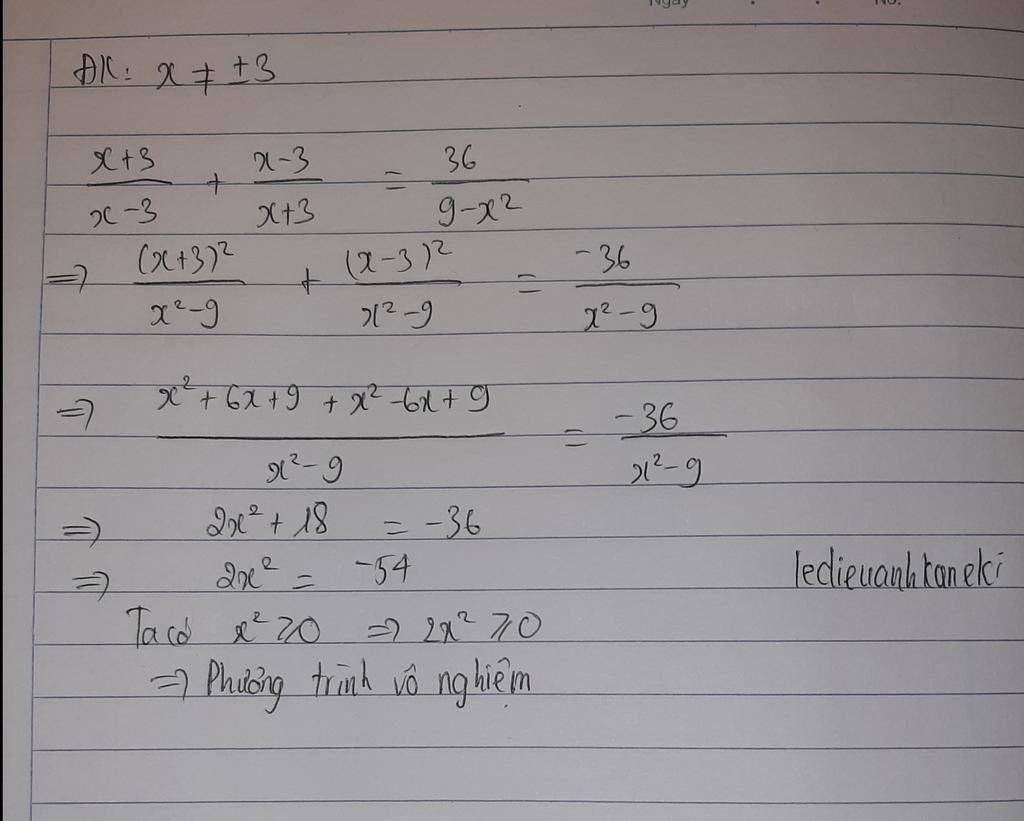 Ngày . . No.
ĐK: x ≠ ±3
x+3/x-3 + x-3/x+3 = 36/9-x²
=> (x+3)²/x²-9 + (x-3)²/x²-9 = -36/x²-9
=> x²+6x+9+x²-6x+9/x²-9 = -36/x²-9
=> 2x²+18 = -36
=> 2x² = -54
ledieuanhkaneki
Ta có x² ⩾ 0 => 2x² ⩾ 0
=> Phương trình vô nghiệm